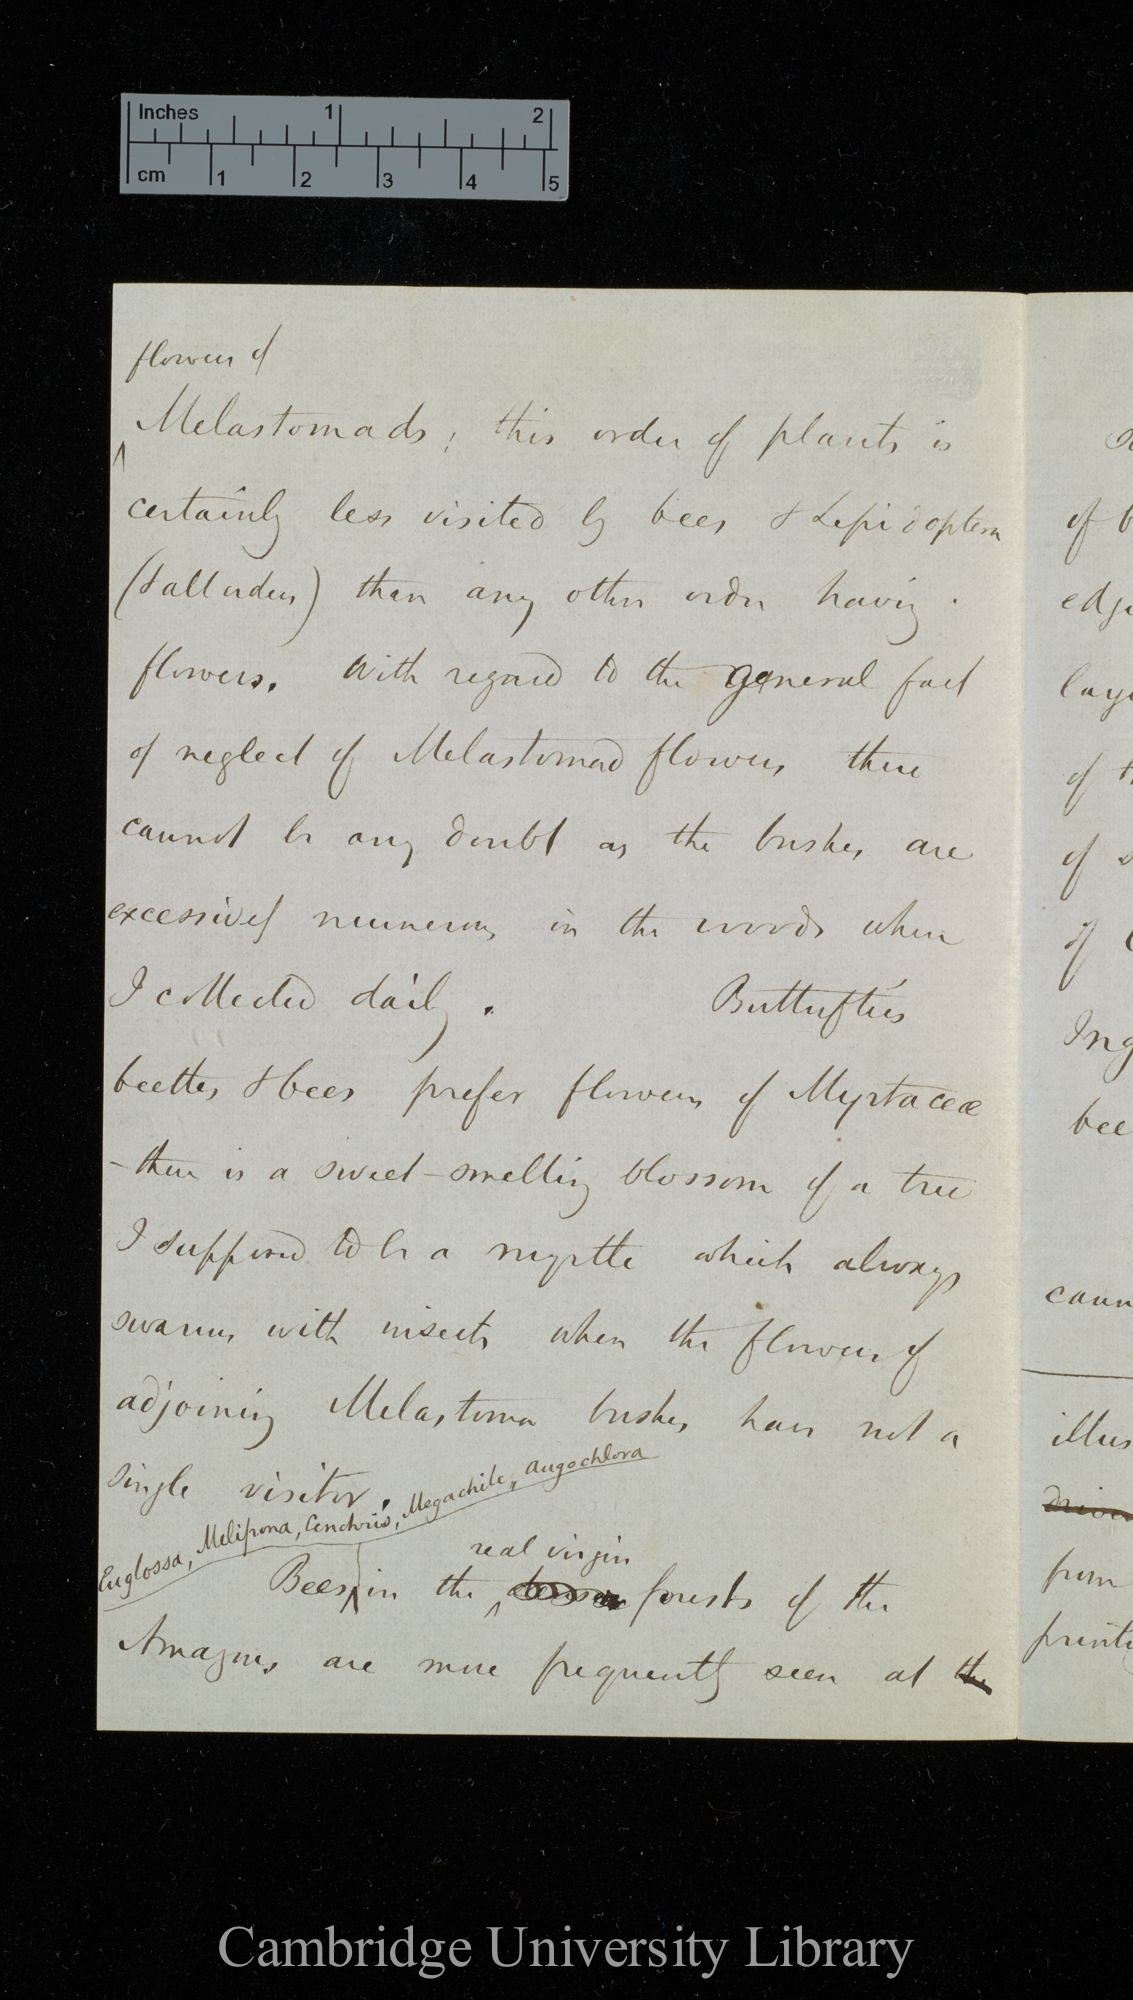 Inches 1 2
cm 1 2 3 4 5
flowers of
Melastomads; this order of plants is
certainly less visited by bees & Lepidoptera
(& all orders) than any other order having
flowers. With regard to the general fact
of neglect of Melastomad flowers there
cannot be any doubt as the bushes are
excessively numerous in the woods where
I collected daily. Butterflies
beetles & bees prefer flowers of Myrtaceæ
- there is a sweet-smelling blossom of a tree
I supposed to be a myrtle which always
swarms with insects when the flowers of
adjoining Melastoma bushes have not a
single visitor.
Euglossa, Melipona, Centris, Megachile, Augochlora
real virgin
Bees in the forests of the
Amazons, are more frequently seen at the
of b
edge
of
of
of
Ing
bee
cann
illus
from
Cambridge University Library